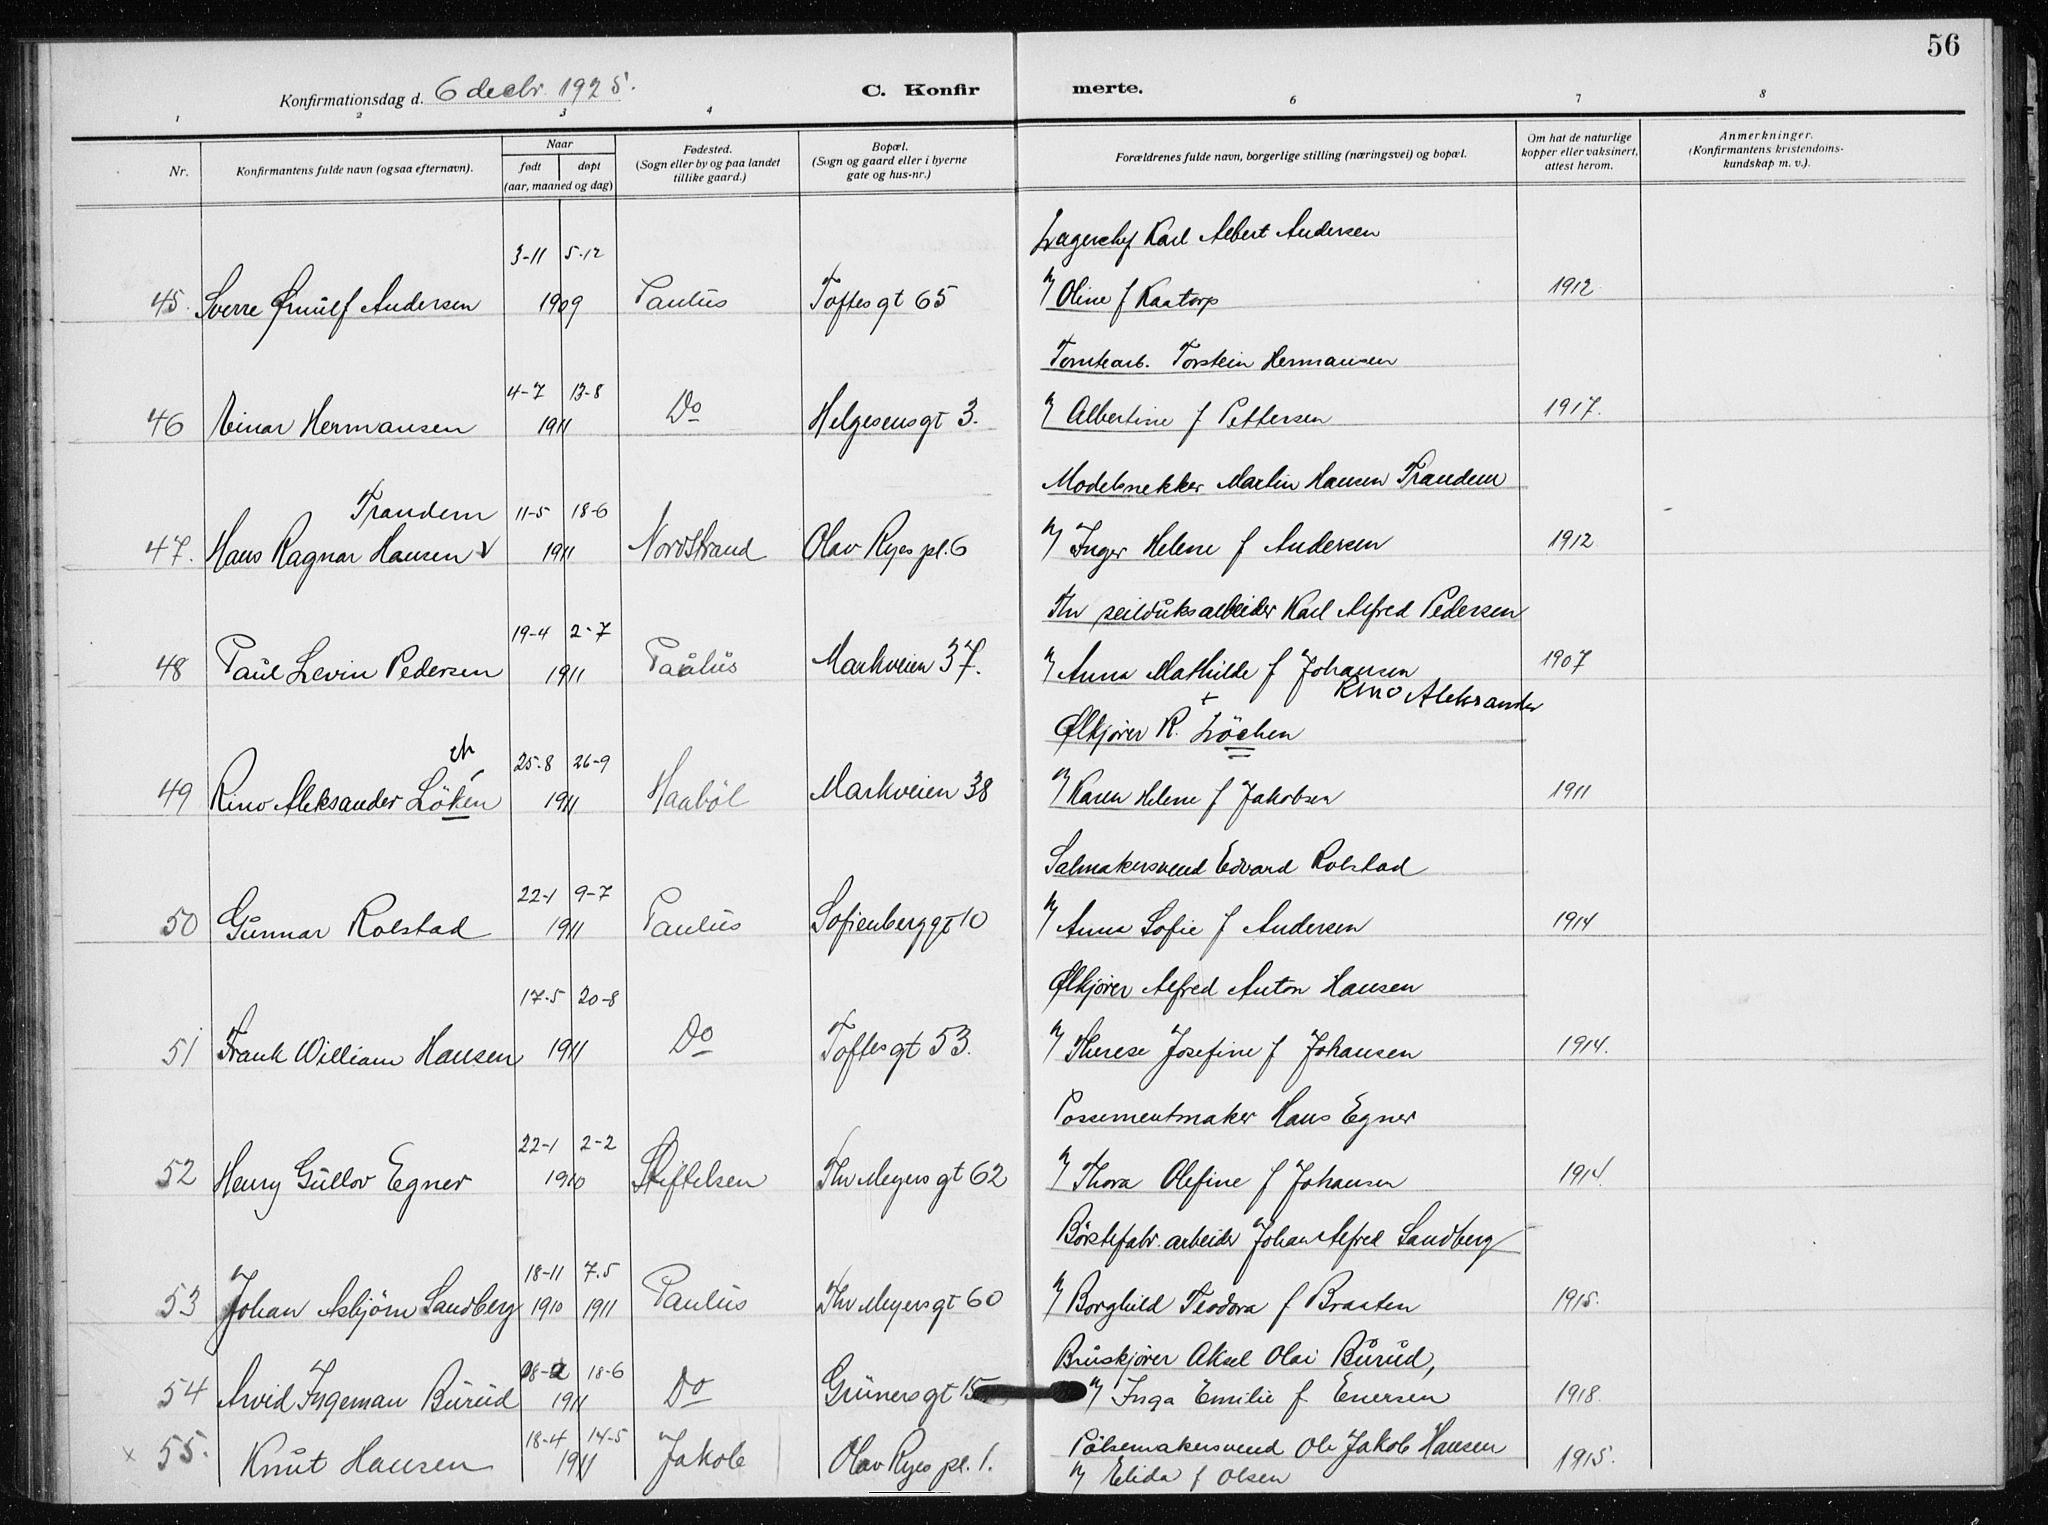 56
Konfirmationsdag d. 6 decbr 1925.
C. Konfirmerte.
1 2 3 4 6 7 8
Nr. Konfirmantens fulde navn (ogsaa efternavn). Naar født døpt (aar, maaned og dag) Fødested. (Sogn eller by og paa landet tillike gaard.) Bopæl. (Sogn og gaard eller i byerne gate og hus-nr.) Forældrenes fulde navn, borgerlige stilling (næringsvei) og bopæl. Om hat de naturlige kopper eller vaksinert, attest herom. Anmerkninger. (Konfirmantens kristendoms-kundskap m. v.).
Lagerchef Karl Albert Andersen
3-11 5-12
45. Sverre Ørnulf Andersen 1909 Paulus Toftesgt 65 Oline f Kaatorp 1912
Torstein Hermansen
4-7 13-8
46 Einar Hermansen 1911 Do Helgesensgt 3. Albertine f Pettersen 1917.
Modelsnekker Martin Hansen Trandem
Trandem 11-5 18-6
47. Hans Ragnar Hansen v 1911 Nordstrand Olav Ryes pl. 6 Inger Helene f Andersen 1912
Fhv seilduksarbeider Karl Alfred Pedersen
19-4 2-7
48 Paul Levin Pedersen 1911 Paulus Markveien 37. Anna Mathilde f Johansen 1907
+ Rino Aleksander
Ølkjører R. Löchen
ch 25-8 26-9
49 Rino Aleksander Löken 1911 Haaböl Markveien 38 Karen Helene f Jakobsen 1911
Salmakersvend Edvard Rolstad
22-1 9-7
50 Gunnar Rolstad 1911 Paulus Sofienberggt 10 Anna Sofie f Andersen 1914
Ølkjører Alfred Anton Hansen
17-5 20-8
51 Frank William Hansen 1911 Do Toftesgt 53. Therese Josefine f Johansen 1914.
Possementmaker Hans Egner
22-1 2-2
52 Henry Gullov Egner 1910 Stiftelsen Thv Meyersgt 62 Thora Olefine f Johansen 1914.
Børstefabr. arbeider Johan Alfred Sandberg
18-11 7.5
53 Johan Asbjørn Sandberg 1910 1911 Paulus Thv Meyersgt 60 Borghild Teodora f Braaten 1915.
Bruskjører Aksel Olai Burud,
18-6
54 Arvid Ingeman Burud 1911 Do Grünersgt 15 Inga Emilie f Enersen 1918.
18-4 14-5 Pölsemakersvend Ole Jakob Hansen
x 55. Knut Hansen 1911 Jakob Olav Ryes pl. 1. Elida f Olsen 1915.